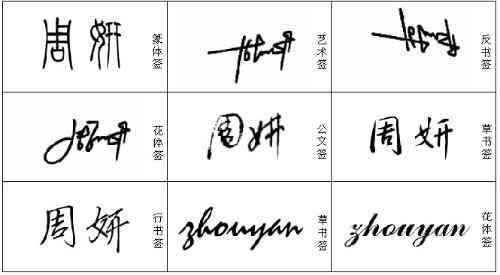 周妍
篆体签
艺术签
反书签
花体签
周妍
公文签
周妍
草书签
周妍
行书签
zhouyan
草书签
zhouyan
花体签